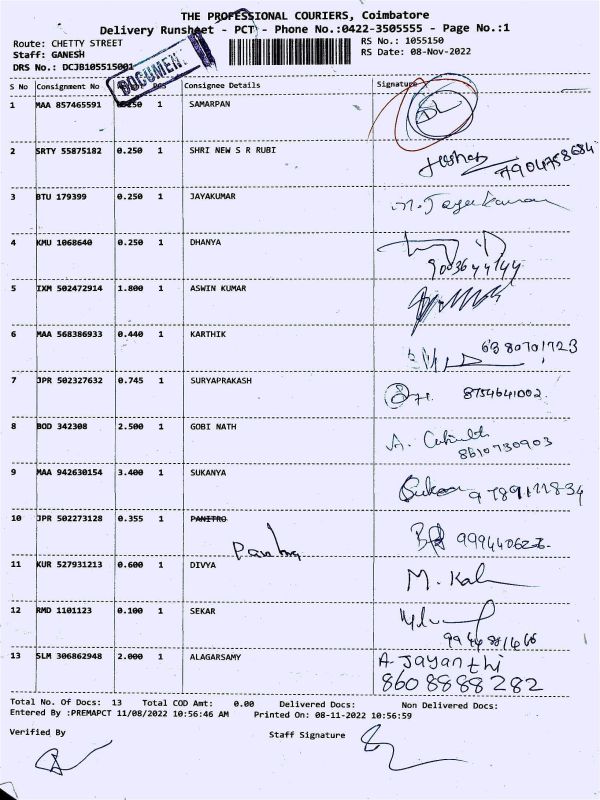 THE PROFESSIONAL COURIERS, Coimbatore
Delivery Runsheet - PCT - Phone No.:0422-3505555 - Page No.:1
Route: CHETTY STREET RS No.: 1055150
Staff: GANESH RS Date: 08-Nov-2022
DRS No.: DCJB105515001
DOCUMENT
S No Consignment No Pcs Consignee Details Signature
1 MAA 857465591 0.250 1 SAMARPAN
2 SRTY 55875182 0.250 1 SHRI NEW S R RUBI
7904758684
3 BTU 179399 0.250 1 JAYAKUMAR M. Jayakumar
4 KMU 1068640 0.250 1 DHANYA
9003644144
5 IXM 502472914 1.800 1 ASWIN KUMAR
6 MAA 568386933 0.440 1 KARTHIK 6380701723
7 JPR 502327632 0.745 1 SURYAPRAKASH 8754641002.
8 BOD 342308 2.500 1 GOBI NATH A.
8610730903
9 MAA 942630154 3.400 1 SUKANYA
10 JPR 502273128 0.355 1 PANITRO
11 KUR 527931213 0.600 1 DIVYA M.
12 RMD 1101123 0.100 1 SEKAR
13 SLM 306862948 2.000 1 ALAGARSAMY A. Jayanthi
8608888282
Total No. Of Docs: 13 Total COD Amt: 0.00 Delivered Docs: Non Delivered Docs:
Entered By :PREMAPCT 11/08/2022 10:56:46 AM Printed On: 08-11-2022 10:56:59
Verified By Staff Signature